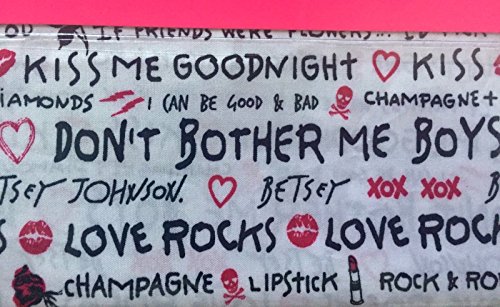 IF FRIENDS WERE FLOWERS...
KISS ME GOODNIGHT KISS
DIAMONDS I CAN BE GOOD & BAD CHAMPAGNE +
DON'T BOTHER ME BOYS
TSEY JOHNSON. BETSEY XOX XOX B
S LOVE ROCKS LOVE ROCKS
CHAMPAGNE LIPSTICK ROCK & RO